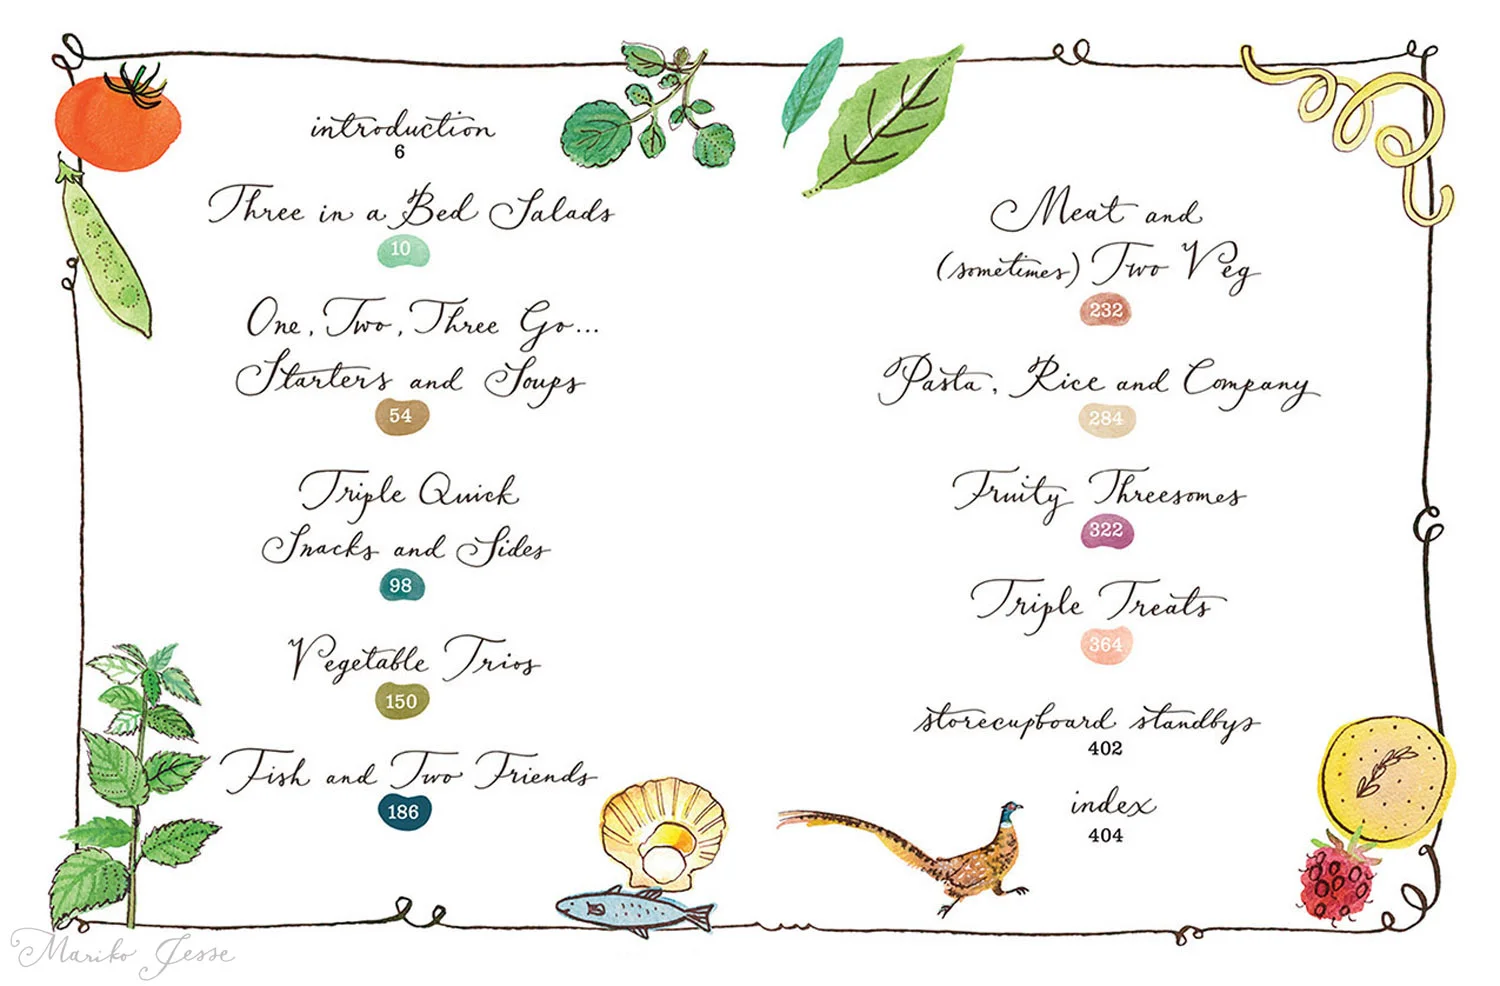 introduction
6
Three in a Bed Salads
10
One, Two, Three Go...
Starters and Soups
54
Triple Quick
Snacks and Sides
98
Vegetable Trios
150
Fish and Two Friends
186
Meat and
(sometimes) Two Veg
232
Pasta, Rice and Company
284
Fruity Threesomes
322
Triple Treats
364
storecupboard standbys
402
index
404
Mariko Jesse